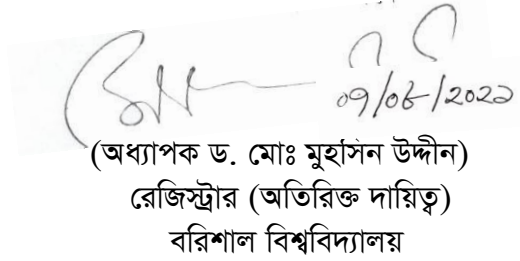 ০৭/০৮/২০২১
(অধ্যাপক ড. মোঃ মুহসিন উদ্দীন)
রেজিস্ট্রার (অতিরিক্ত দায়িত্ব)
বরিশাল বিশ্ববিদ্যালয়